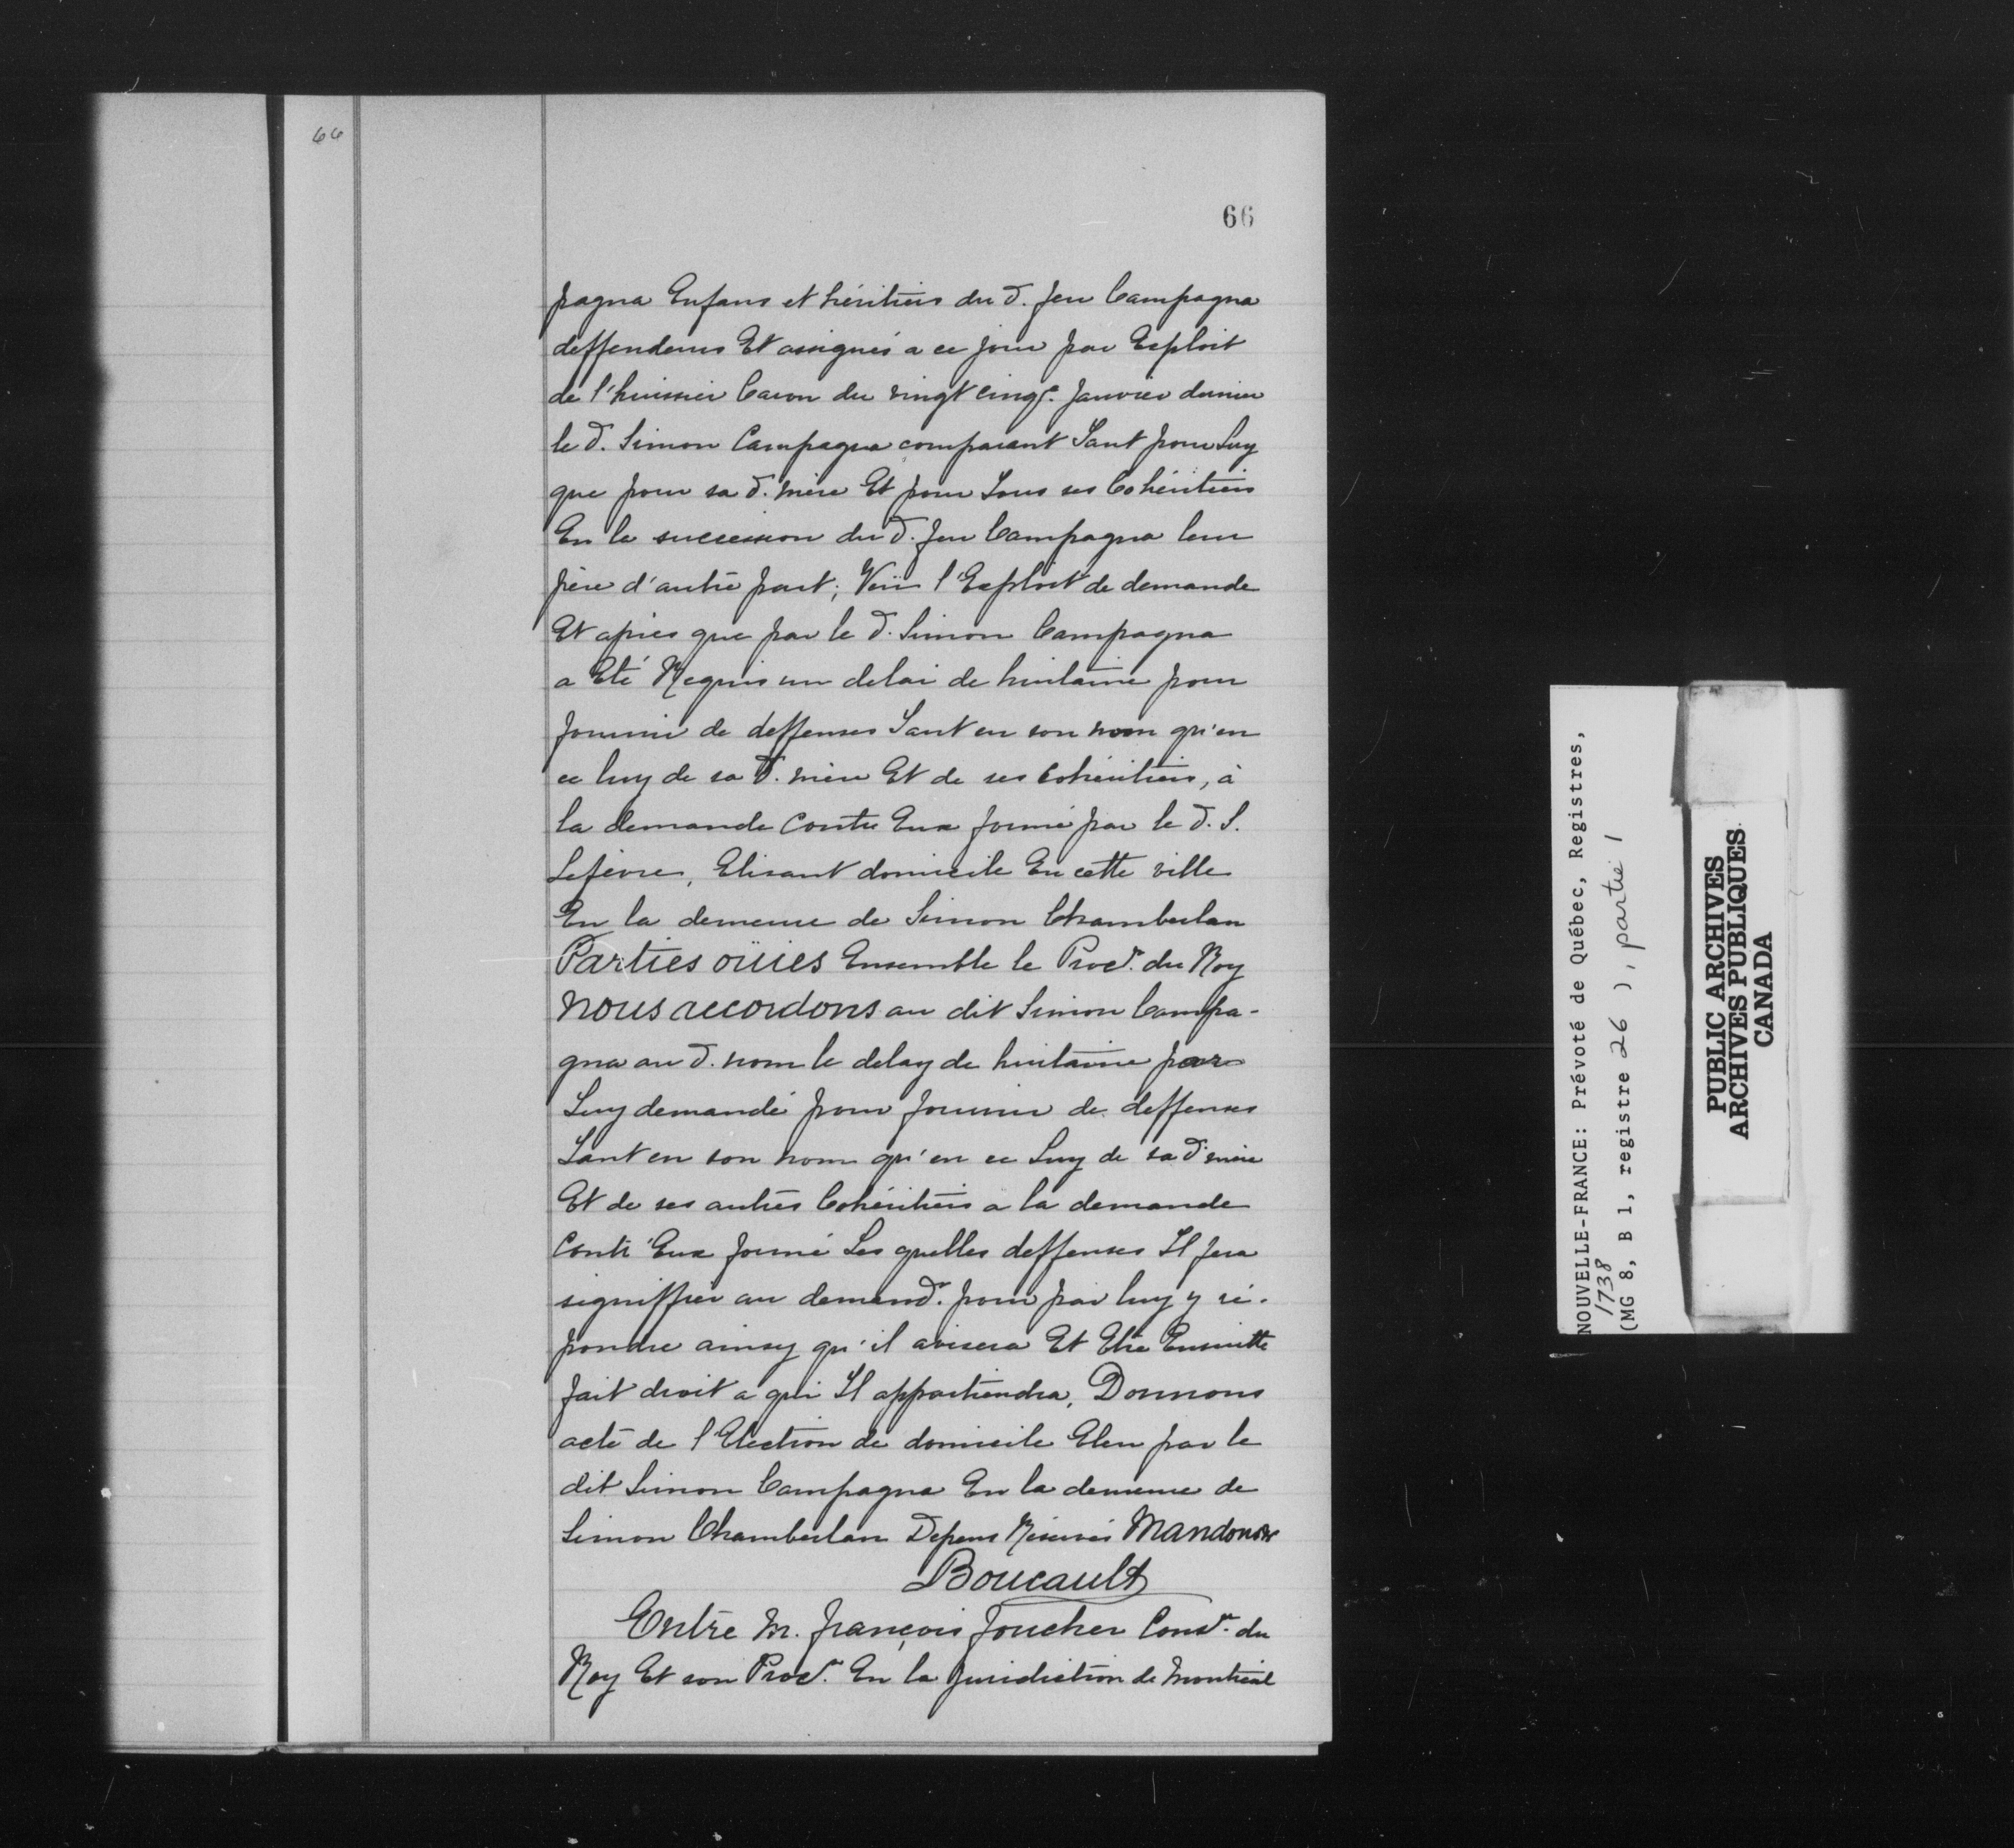 66
66
pagna Enfans et héritiers du d. feu Campagna
deffendeurs Et assignés a ce jour par Exploit
de l'huissier Caron du vingt cinqe. Janvier dernier
le d. Simon Campagna comparant Tant pour Luy
que pour sa d. mère Et pour Tous ses Cohéritiers
En la succession du d. feu Campagna leur
père d'autre part; Veü l'Exploit de demande
Et après que par le d. Simon Campagna
a Eté Requis un delai de huitaine pour
fournir de deffenses Tant en son nom qu'en
ce luy de sa d. mère Et de ses Cohéritiers, à
la demande contre Eux formé par le d. S.
Lefèvre, Elisant domicile En cette ville
En la demeure de Simon Chamberlan
Parties oüies Ensemble le Procr. du Roy
nous accordons au dit Simon Campa-
gna au d. nom le delay de huitaine par
Luy demandé pour fournir de deffenses
Tant en son nom qu'en ce Luy de sa d. mère
Et de ses autres Cohéritiers a la demande
Contr'Eux formé Les quelles deffenses Il fera
signiffier au demandr. pour par luy y ré-
pondre ainsy qu'il avisera Et Etre Ensuitte
fait droit a qui Il appartiendra, Donnons
acte de l'Election de domicile Eleu par le
dit Simon Campagna En la demeure de
Simon Chamberlan Depens Réservés Mandons
Boucault
Entre M. françois foucher Consr. du
Roy Et son Procr. En la Juridiction de Montréal
NOUVELLE-FRANCE: Prévoté de Québec, Registres,
1738
(MG 8, B 1, registre 26 ), partie 1
PUBLIC ARCHIVES
ARCHIVES PUBLIQUES
CANADA